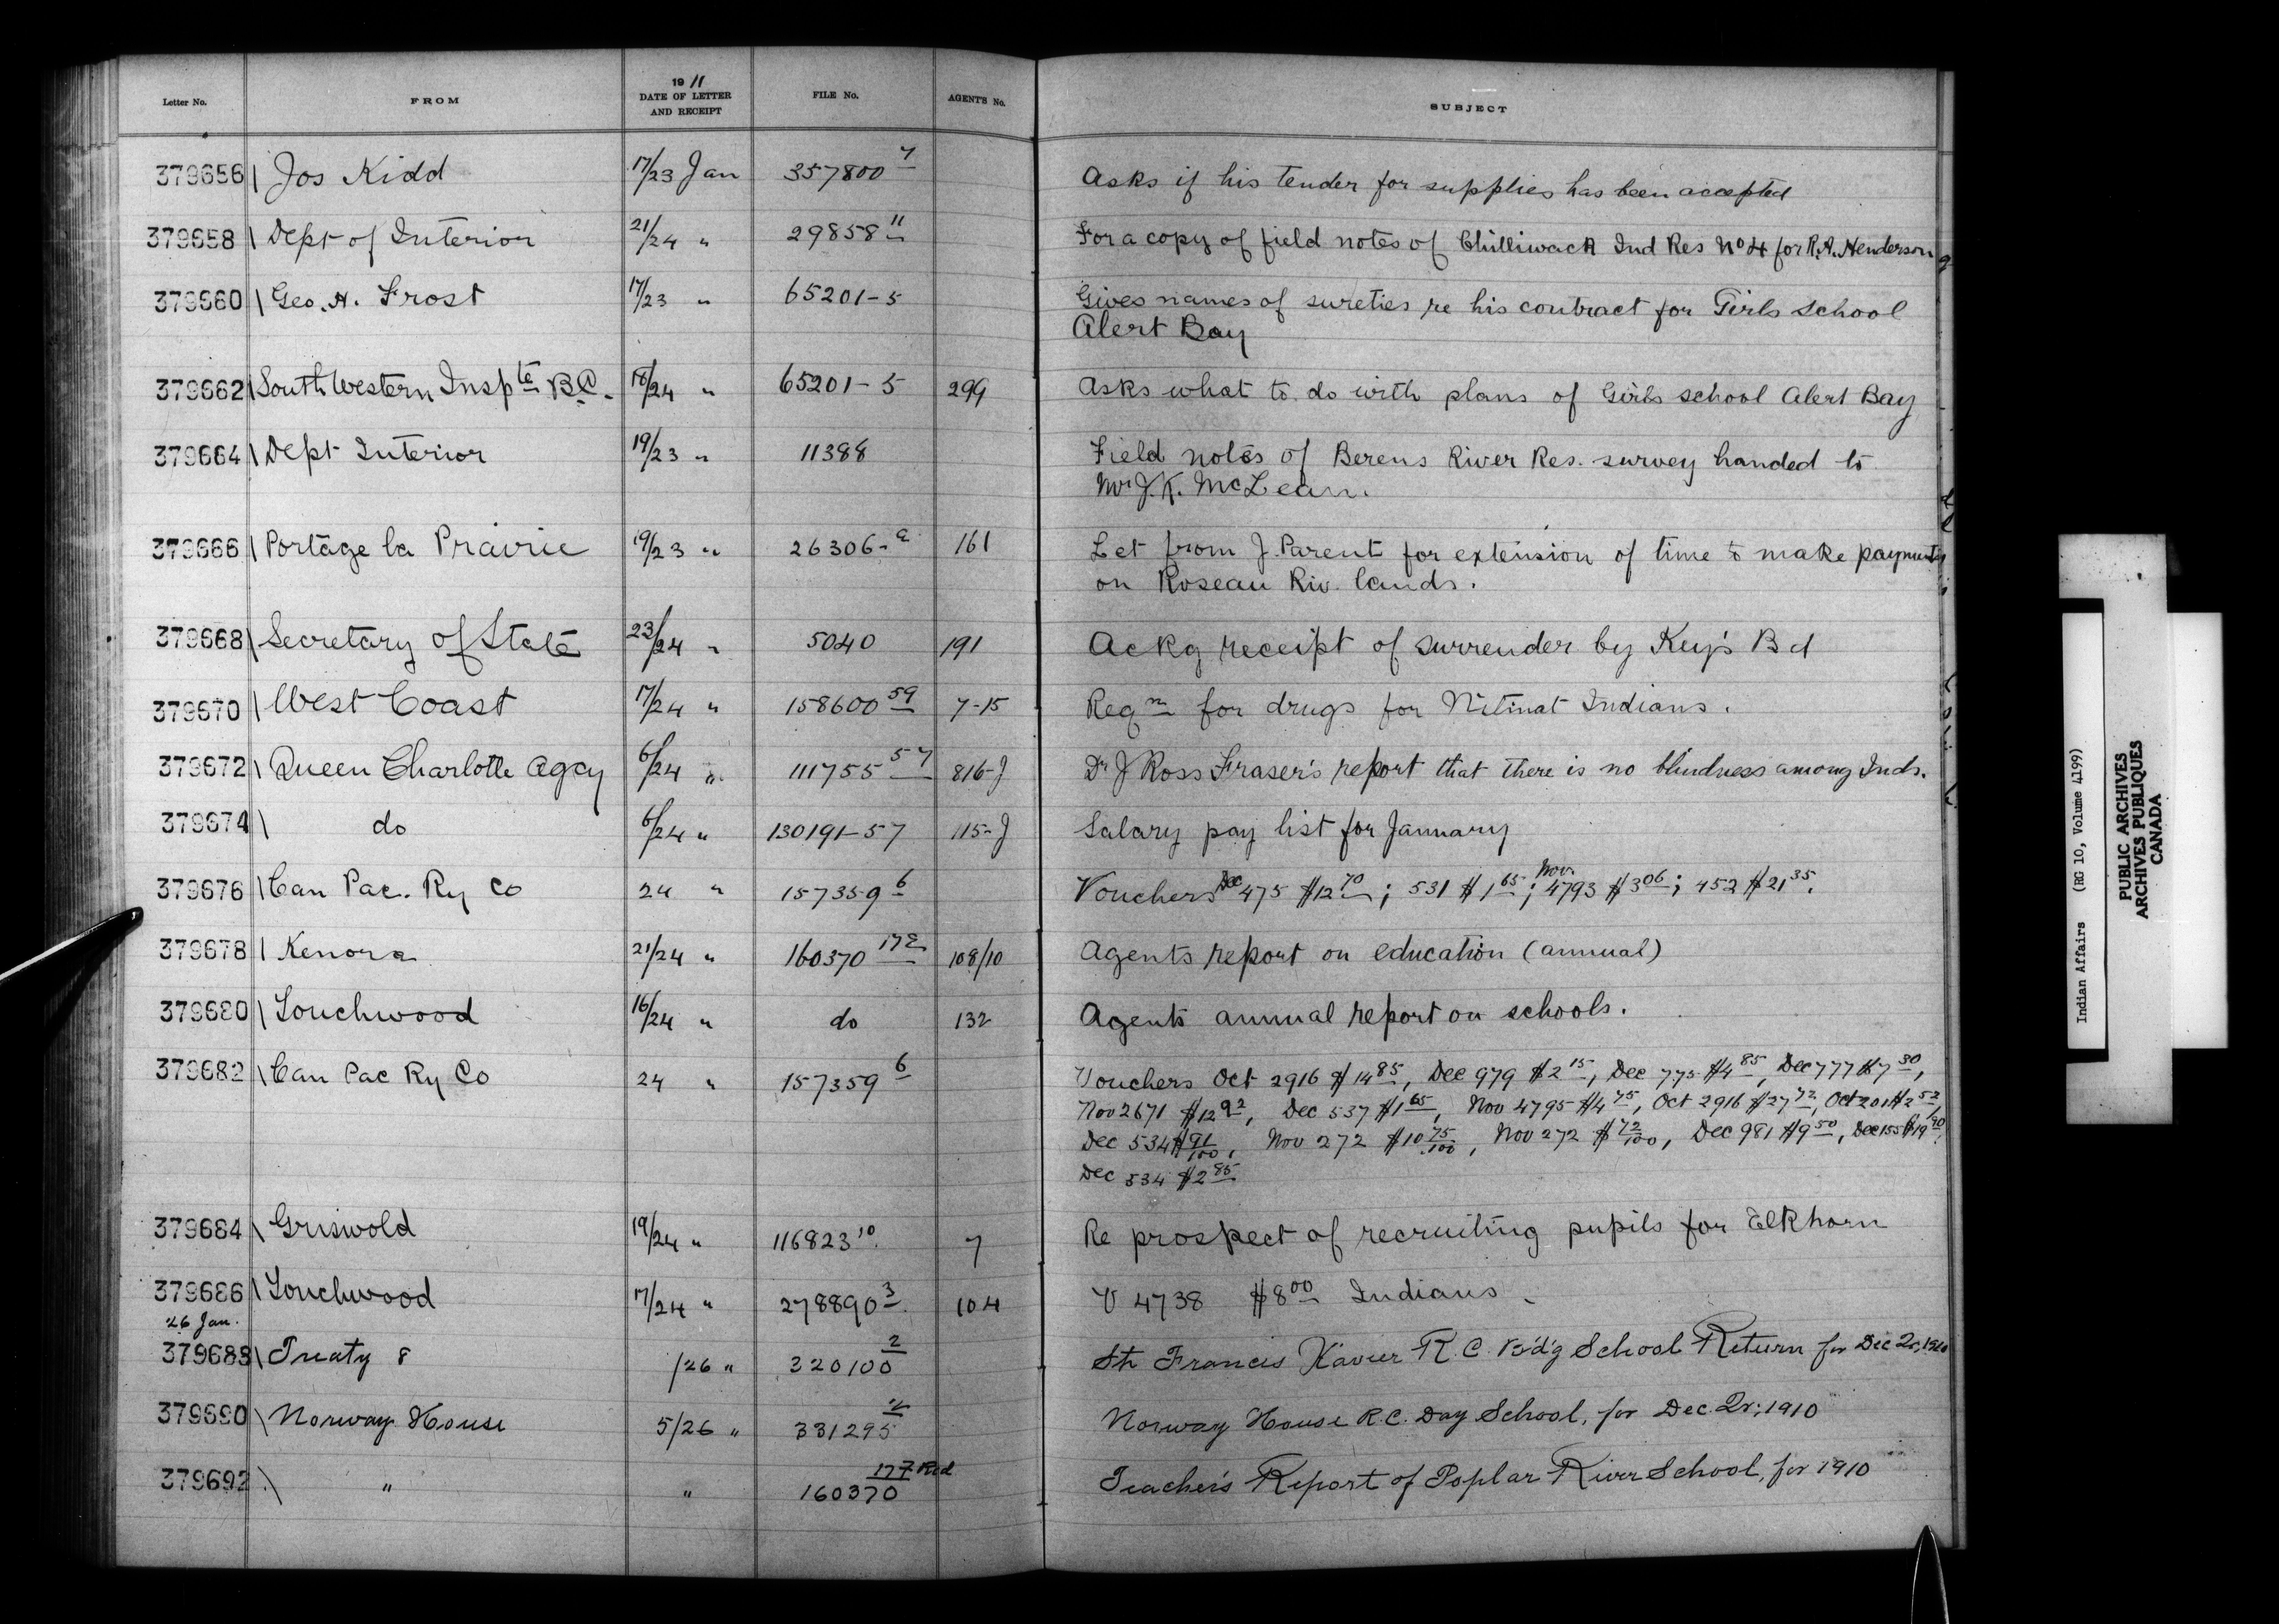 Letter No. FROM 1911 DATE OF LETTER AND RECEIPT FILE No. AGENT'S No. SUBJECT
379656 Jos Kidd 17/23 Jan 357800 7 Asks if his tender for supplies has been accepted
379658 Dept of Interior 21/24 " 29858 11 For a copy of field notes of Chilliwack Ind Res No 4 for R.A. Henderson
379660 Geo. H. Frost 17/23 " 65201-5 Gives names of sureties re his contract for Girls School
Alert Bay
379662 South Western Inspte B.C. 18/24 " 65201-5 299 Asks what to do with plans of Girls school Alert Bay
379664 Dept Interior 19/23 " 11388 Field notes of Berens River Res. survey handed to
Mr J.K. McLean.
379666 Portage la Prairie 19/23 " 26306-a 161 Let from J. Parent for extension of time to make payments
on Roseau Riv. lands.
379668 Secretary of State 23/24 " 5040 191 Ackg receipt of surrender by Key's Bd
379670 West Coast 17/24 " 158600 59 7-15 Reqn for drugs for Nitinat Indians.
379672 Queen Charlotte Agcy 6/24 " 111755 57 816-J Dr J Ross Fraser's report that there is no blindness among Inds.
379674 do 6/24 " 130191-57 115-J Salary pay list for January
379676 Can Pac. Ry Co 24 " 157359 6 Vouchers Dec 475 $12 70; 531 $1 65; Nov. 4793 $3 06; 452 $21 35.
379678 Kenora 21/24 " 160370 108/10 Agents report on education (annual)
379680 Touchwood 16/24 " do 132 Agents annual report on schools.
379682 Can Pac Ry Co 24 " 157359 6 Vouchers Oct 2916 $14 85, Dec 979 $2 15, Dec 775 $4 85, Dec 777 $7 30,
Nov 2671 $12 92, Dec 537 $1 65, Nov 4795 $4 75, Oct 2916 $27 72, Oct 201 $2 52,
Dec 534 $91/100, Nov 272 $10 75/100, Nov 272 $72/100, Dec 981 $9 50, Dec 155 $19 90,
Dec 534 $2 85
379684 Griswold 19/24 " 116823 10. 7 Re prospect of recruiting pupils for Elkhorn
379686 Touchwood 17/24 " 278890 3. 104 V 4738 $8 00 Indians
26 Jan.
379688 Treaty 8 /26 " 320100 2 St. Francis Xavier R.C. B'd'g School Return for Dec Qr, 1910
379690 Norway House 5/26 " 331295 2 Norway House R.C. Day School, for Dec. Qr; 1910
379692 " " 160370 177 Red Teacher's Report of Poplar River School, for 1910
Indian Affairs (RG 10, Volume 4199)
PUBLIC ARCHIVES
ARCHIVES PUBLIQUES
CANADA